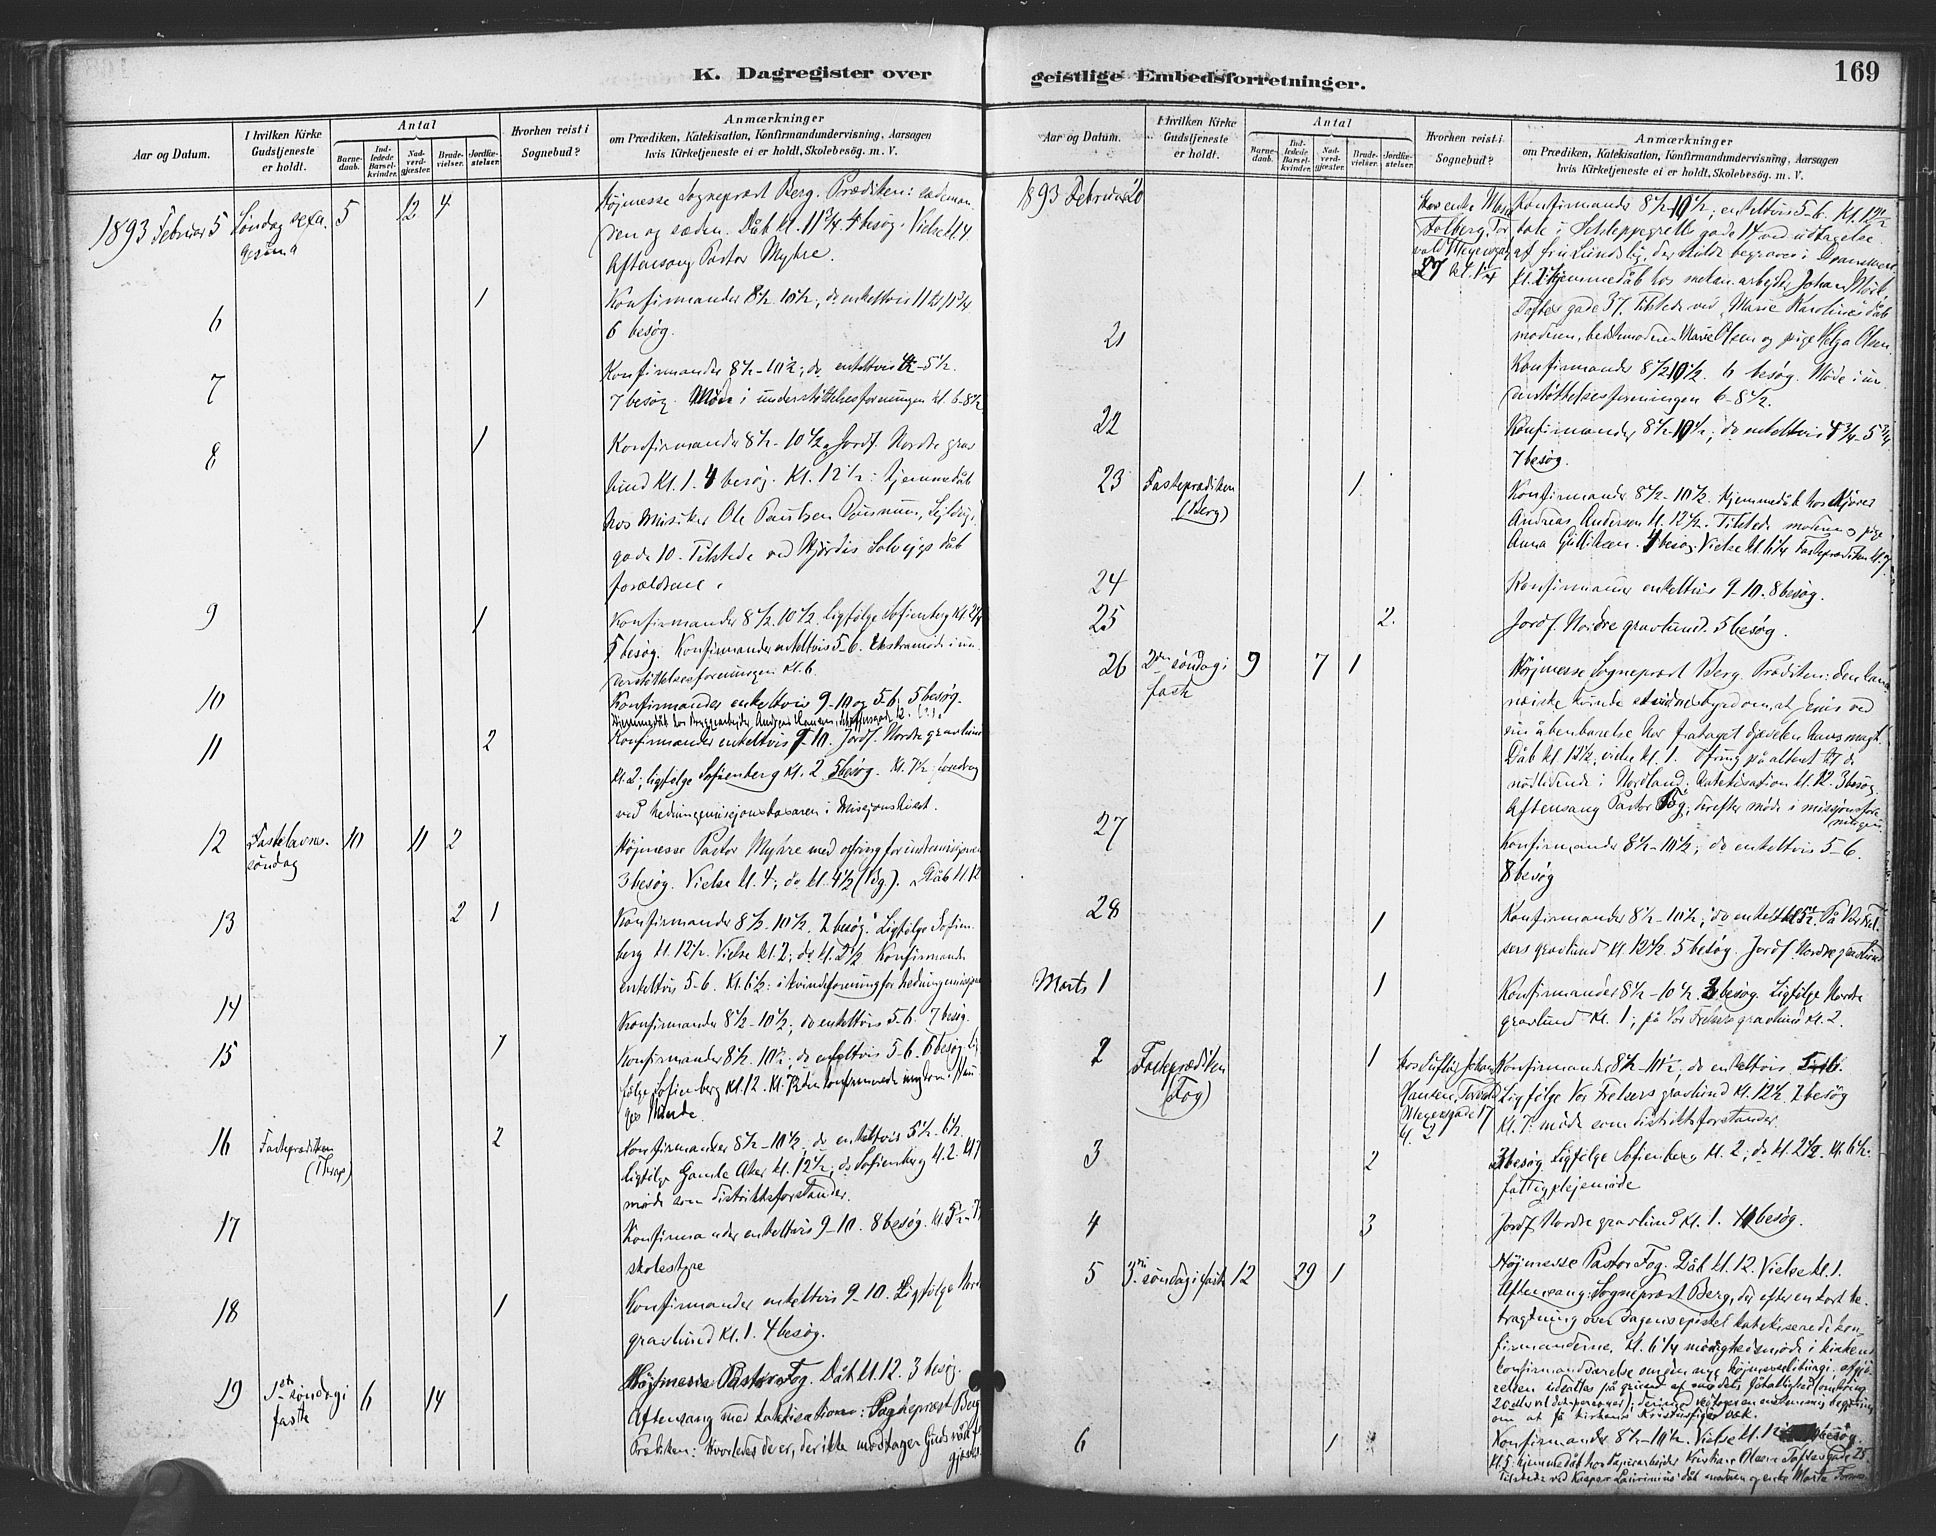 K. Dagregister over
geistlige Embedsforretninger.
169
Aar og Datum.
I hvilken Kirke Gudstjeneste er holdt.
Antal
Barnedaab.
Indledede Barselkvinder.
Nadverdgjæster.
Brudevielser.
Jordfæstelser.
Hvorhen reist i Sognebud?
Anmærkninger
om Prædiken, Katekisation, Konfirmandundervisning, Aarsagen
hvis Kirketjeneste ei er holdt, Skolebesøg. m. V.
1893 Februar 5 Søndag sexa- 5 12 4 Højmesse Sognepræst Berg. Prædiken: sædeman-
gesima nen og sæden. Dåb kl. 11 3/4. 4 besøg. Vielse kl. 4.
Aftensang Pastor Myhre.
6 1 Konfirmander 8½-10½; do enkeltvis 11 11 3/4
6 besøg.
7 Konfirmander 8½-10½; do enkeltvis -5½.
7 besøg. Møde i understøttelsesforeningen kl. 6-8½
8 1 Konfirmander 8½-10½. Jordf. Nordre grav-
lund kl. 1. 4 besøg. Kl. 12½: hjemmedåb
hos Musiker Ole Paulsen
gade 10. Tilstede ved Hjørdis Solvejgs dåb
forældrene.
9 1 Konfirmander 8½-10½. Ligfølge Sofienberg kl.
besøg. Konfirmander enkeltvis 5-6. Ekstramøde i un-
derstøttelsesforeningen kl. 6.
10 Konfirmander enkeltvis 9-10 og 5-6. 5 besøg.
Hjemmedåb hos Andreas Hansen,
11 2 Konfirmander enkeltvis 9-10. Jordf. Nordre gravlund
kl. 2; ligfølge Sofienberg kl. 2. 5 besøg. Kl. 7½: foredrag
ved hedningemissionsbasaren i Missionshuset.
12 Fastelavns- 10 11 2 Højmesse Pastor Myhre med ofring for indremissionen
søndag 3 besøg. Vielse kl. 4; do kl. 4½ (Bg). Dåb kl. 12
13 2 1 Konfirmander 8½-10½. 2 besøg. Ligfølge Sofien-
berg kl. 12½. Vielse kl. 2; do kl. 2½ Konfirmander
enkeltvis 5-6. Kl. 6½: i kvindeforening for hedningemissionen
14 Konfirmander 8½-10½; do enkeltvis 5-6. 7 besøg.
15 1 Konfirmander 8½-10½; do enkeltvis 5-6. 6 besøg. Lig-
følge Sofienberg kl. 12. Kl. 7½ den konfirmerede ungdom i Hau-
ges Minde.
16 Fasteprædiken 2 Konfirmander 8½-10½; do enkeltvis 5½-6½.
(Thrap) Ligfølge Gamle Aker kl. 12½; do Sofienberg kl. 2. Kl 7
møde som distriktsforstander.
17 Konfirmander enkeltvis 9-10. 8 besøg. Kl. 5½-7
skolestyre
18 1 Konfirmander enkeltvis 9-10. Ligfølge Nordre
gravlund kl. 1. 4 besøg.
19 1ste søndag i 6 14 Højmesse Pastor Fog. Dåb kl. 12. 3 besøg.
faste Aftensang med katekisation: Sognepræst Berg
Prædiken: Hvorledes de er, der ikke modtager Guds nåde
1893 Februar 20 Hos enke Konfirmander 8½-10½; enkeltvis 5-6. Kl. 12
Tor- tale i Schleppegrells gade 14 ved udtagelse
vald Meyersgade af fru Lundsby, der skulde begraves i Drammen.
27 kl. Hjemmedåb hos arbejder Johan Mørk
Toftes gade 37. Tilstede ved Marie Karolines dåb
21 moderen, bedstemoderen Marie Olsen og pige Helga Olsen.
Konfirmander 8½-10½. 6 besøg. Møde i un-
derstøttelsesforeningen 6-8½.
22 Konfirmander 8½-10½; do enkeltvis 4 3/4-5 3/4
7 besøg.
23 Fasteprædiken 1 Konfirmander 8½-10½. Hjemmedåb hos kjører
(Berg) Andreas Anderson kl. 12½. Tilstede moderen og pige
Anna Gulliksen. 4 besøg. Vielse kl. 6¼ Fasteprædiken kl. 7.
24 Konfirmander enkeltvis 9-10. 8 besøg.
25 2. Jordf. Nordre gravlund. 5 besøg.
26 2den søndag i 9 7 1 Højmesse Sogneprest Berg. Prædiken: den kana-
faste næiske kvinde et vidnesbyrd om, at Jesus ved
sin åbenbarelse har frataget djævelen hans magt.
Dåb kl. 12½, vielse kl. 1. Ofring på alteret til de
nødlidende i Nordland; katekisation kl. 12. 3 besøg.
Aftensang Pastor Fog, derefter møde i missionsfore-
ningen.
27 Konfirmander 8½-10½; do enkeltvis 5-6.
8 besøg
28 1 Konfirmander 8½-10½; do enkelt På Vor Frel-
sers gravlund kl. 12½. 5 besøg. Jordf. Nordre gravlund
Marts 1 1 Konfirmander 8½-10½. besøg. Ligfølge Nordre
gravlund kl. 1; på Vor Frelsers gravlund kl. 2.
2 Fasteprædiken 1 Hos Johan Konfirmander 8½-10½; do enkeltvis
(Fog) Hansen, Torvald Ligfølge Vor Frelsers gravlund kl. 12½. 2 besøg
Meyersgade 17 Kl. 7: møde som distriktsforstander.
kl. 2
3 2 3 besøg. Ligfølge Sofienberg kl. 2; do kl. 2½. Kl. 6½.
fattigplejemøde
4 3 Jordf. Nordre gravlund kl. 1. besøg.
5 3die søndag i faste 12 29 1 Højmesse Pastor Fog. Dåb kl. 12. Vielse kl. 1.
Aftensang: Sogneprest Berg, der efter en kort be-
tragtning over dagens epistel katekiserede kon-
firmanderne. Kl. 6¼ menighedsmøde i kirkens
konfirmandværelse angående ny højmesseliturgi; afgjø-
relsen udsattes på grund af mødets fåtallighed (omkring
20 eller vel det personer); derimod vedtoges en enstemmig begjæring
om at få kirkens Kristusfigur væk.
6 1 Konfirmander 8½-10½. Vielse kl. 12 besøg.
Kl. 5: hjemmedåb hos Papirarbejder Kristian Olsen Toftesgade 25.
Tilstede ved Kaspar Laurinius' dåb moderen og enke Marte